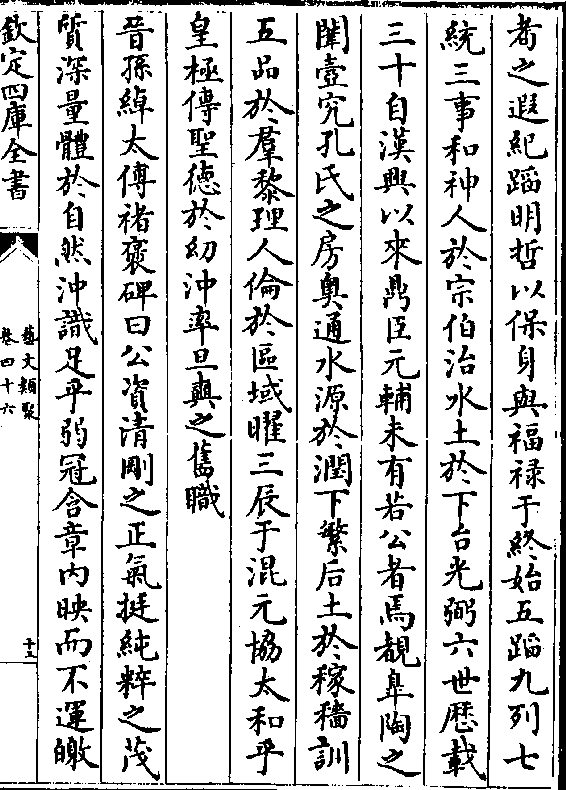 耇之遐紀蹈明哲以保身與福禄于終始五蹈九列七
統三事和神人於宗伯治水土於下台光弼六世歴載
三十自漢興以來鼎臣元輔未有若公者焉覩臯陶之
閫壼究孔氏之房奥通水源於潤下繁后土於稼穡訓
五品於羣黎理人倫於區域曜三辰于混元協太和乎
皇極傳聖徳於幼沖率旦奭之舊職
晉孫綽太傅禇褒碑曰公資清剛之正氣挺純粹之茂
質深量體於自然沖識足乎弱冠含章内映而不運皦
欽定四庫全書
藝文類聚
卷四十六
十三